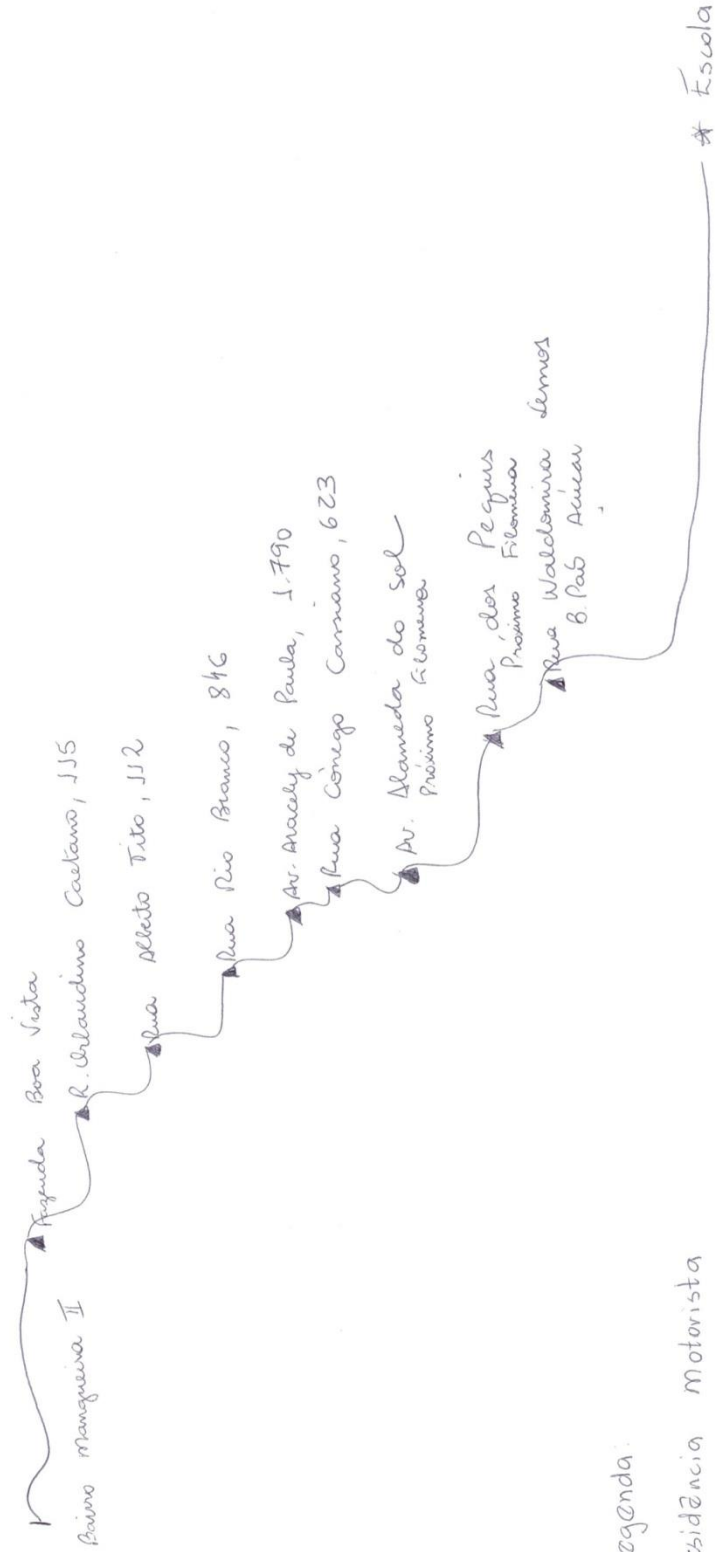 Bairro Mangueira II
Fazenda Boa Vista
R. Orlandino Caetano, 115
Rua Alberto Tito, 112
Rua Rio Branco, 846
Av. Aracely de Paula, 1.790
Rua Cônego Cassiano, 623
Av. Alameda do Sol
Próximo Filomena
Rua dos Pequis
Próximo Filomena
Rua Waldomira Lemos
B. Paõ Acúcar
* Escola
egenda:
sidência motorista